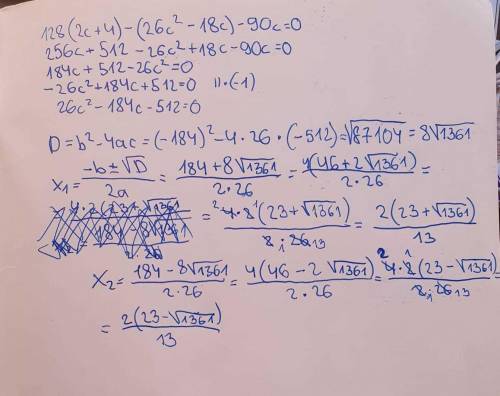 128(2c+4)-(26c²-18c)-90c=0
256c+512-26c²+18c-90c=0
184c+512-26c²=0
-26c²+184c+512=0 //·(-1)
26c²-184c-512=0
D=b²-4ac=(-184)²-4·26·(-512)=√87104=8√1361
x₁=(-b±√D)/(2a)=(184+8√1361)/(2·26)=4(46+2√1361)/(2·26)=
=(23+√1361)/13=2(23+√1361)/13
x₂=(184-8√1361)/(2·26)=4(46-2√1361)/(2·26)=(23-√1361)/13=
=2(23-√1361)/13